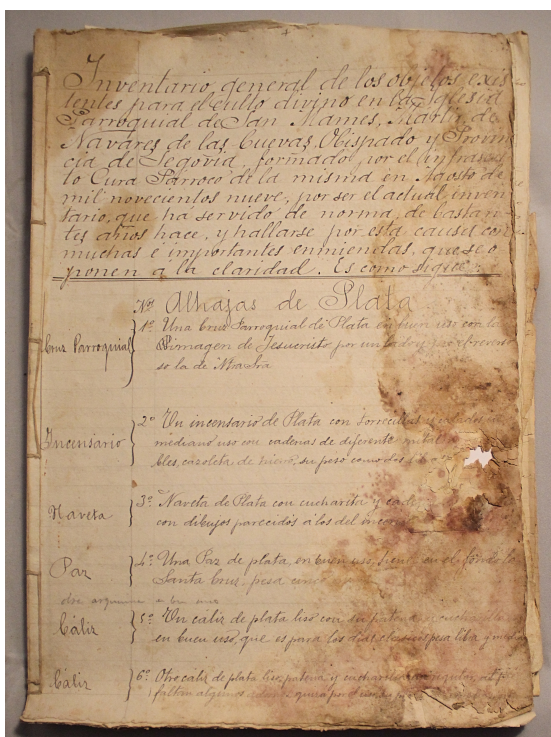 Inventario general de los objetos exis
tentes para el culto divino en la Iglesia
Parroquial de San Mames, Martir, de
Navares de las Cuevas, Obispado y Provin
cia de Segovia, formado por el infrascri
to Cura Párroco de la misma en Agosto de
mil novecientos nueve, por ser el actual inven
tario, que ha servido de norma, de bastan
tes años hace, y hallarse por esta causa con
muchas e importantes enmiendas, que se o
ponen a la claridad. Es como sigue:
Nos Alhajas de Plata
Cruz Parroquial 1º Una Cruz Parroquial de Plata en buen uso con la
imagen de Jesucristo por un lado y por el rever
so la de Ntra Sra
Incensario 2º Un incensario de Plata con torrecillas
mediano uso con cadenas de diferente metal
bles, cazoleta de hierro, su peso como dos
Naveta 3º Naveta de Plata con cucharita y
con dibujos parecidos a los del
Paz 4º Una Paz de plata, en buen uso, tiene en el fondo la
Santa Cruz, pesa
Cáliz 5º Un cáliz de plata liso con su patena y cucharilla
en buen uso, que es para los dias pesa libra y media
Cáliz 6º Otro cáliz de plata liso, patena y cucharilla
faltan algunos